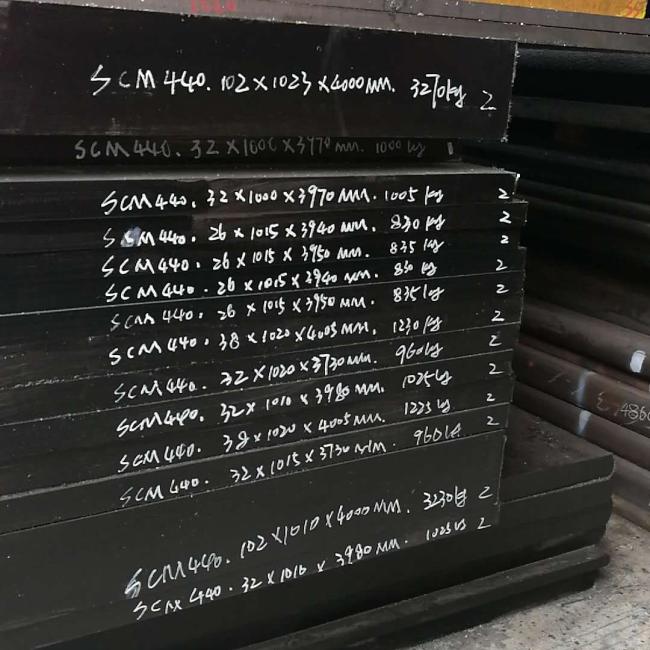 SCM440. 102×1023×4000MM. 3270kg 2
SCM440. 32×1000×3970MM. 1000kg
SCM440. 32×1000×3970MM. 1005kg 2
SCM440. 26×1015×3940MM. 830kg 2
SCM440. 26×1015×3950MM. 835kg 2
SCM440. 26×1015×3940MM. 830kg 2
SCM440. 26×1015×3950MM. 835kg 2
SCM440. 38×1020×4005MM. 1230kg 2
SCM440. 32×1020×3730MM. 960kg 2
SCM440. 32×1010×3980MM. 1025kg 2
SCM440. 38×1020×4005MM. 1225kg 2
SCM440. 32×1015×3730MM. 960kg 2
SCM440. 102×1010×4000MM. 3230kg 2
SCM440. 32×1010×3980MM. 1025kg 2